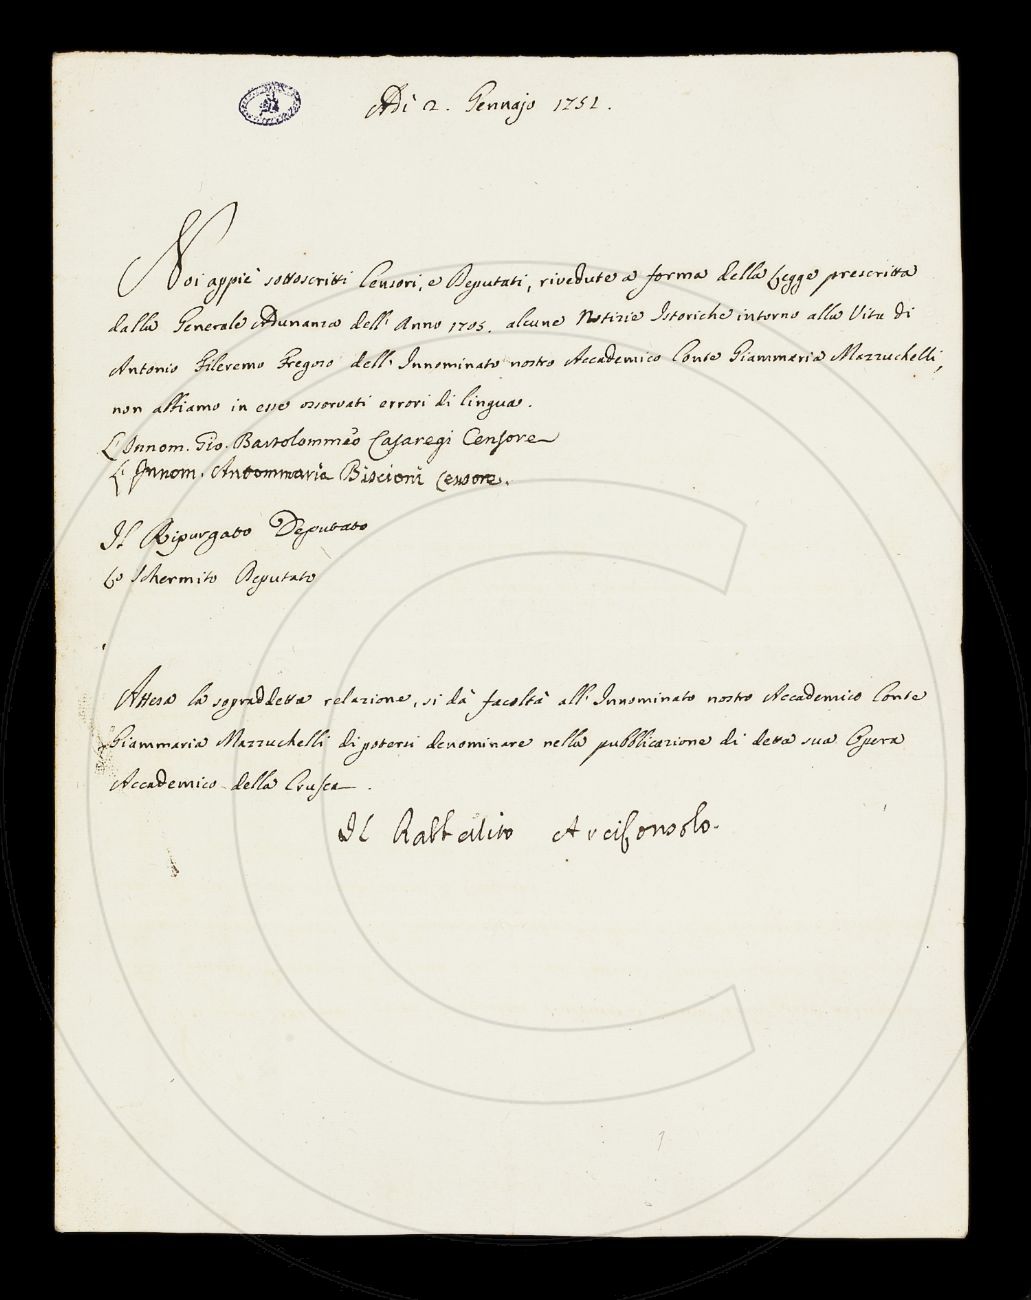 Adì 2. Gennajo 1751.
Noi appiè sottoscritti Censori, e Deputati, rivedute a forma della Legge prescritta
dalla Generale Adunanza dell' Anno 1705. alcune Notizie Istoriche intorno alla Vita di
Antonio Fileremo Fregoso dell' Innominato nostro Accademico Conte Giammaria Mazzuchelli,
non abbiamo in esse osservati errori di lingua.
L'Innom. Gio. Bartolommèo Casaregi Censore
L'Innom. Antommaria Biscioni Censore.
Il Ripurgato Deputato
Lo Schermito Deputato
Attesa la sopraddetta relazione, si dà facoltà all' Innominato nostro Accademico Conte
Giammaria Mazzuchelli di potersi denominare nella pubblicazione di detta sua Opera
Accademico della Crusca.
Il Arciconsolo.